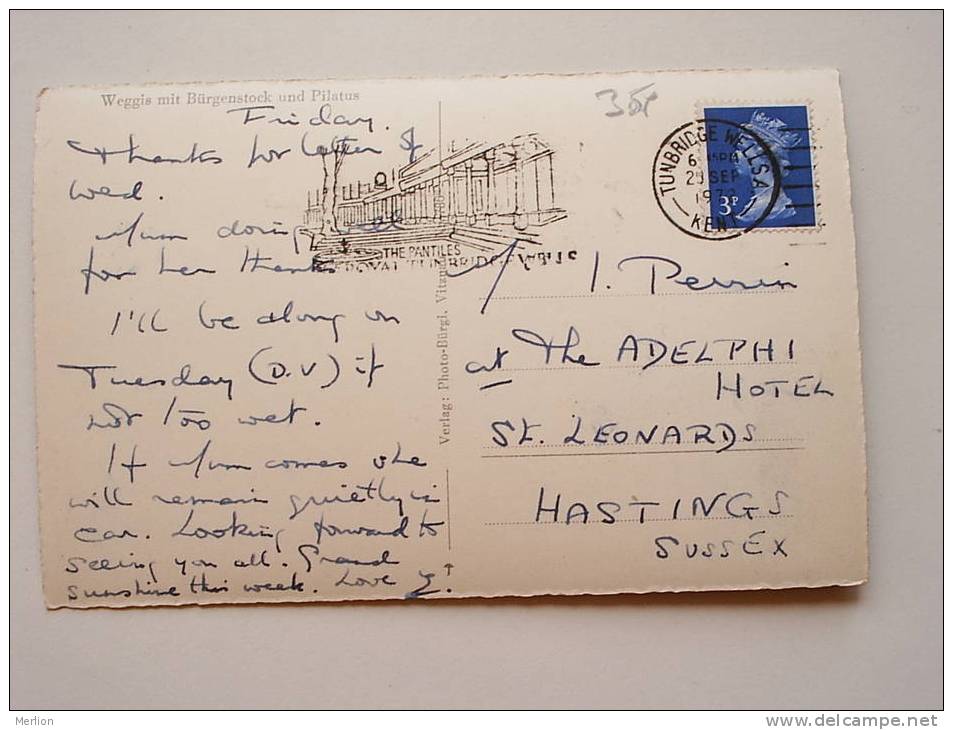 Weggis mit Bürgenstock und Pilatus
Friday.
Thanks for letter of
Wed.
Mum doing well
for her thanks
I'll be along on
Tuesday (D.V) if
not too wet.
If Mum comes she
will remain quietly in
car. Looking forward to
seeing you all. Grand
sunshine this week. Love
Verlag: Photo-Bürgi,
THE PANTILES
ROYAL TUNBRIDGE WELLS
35
TUNBRIDGE WELLS A
SEP
KENT
3P
I. Perrin
at The ADELPHI
HOTEL
St. LEONARDS
HASTINGS
SUSSEX
Merlion
www.delcampe.net